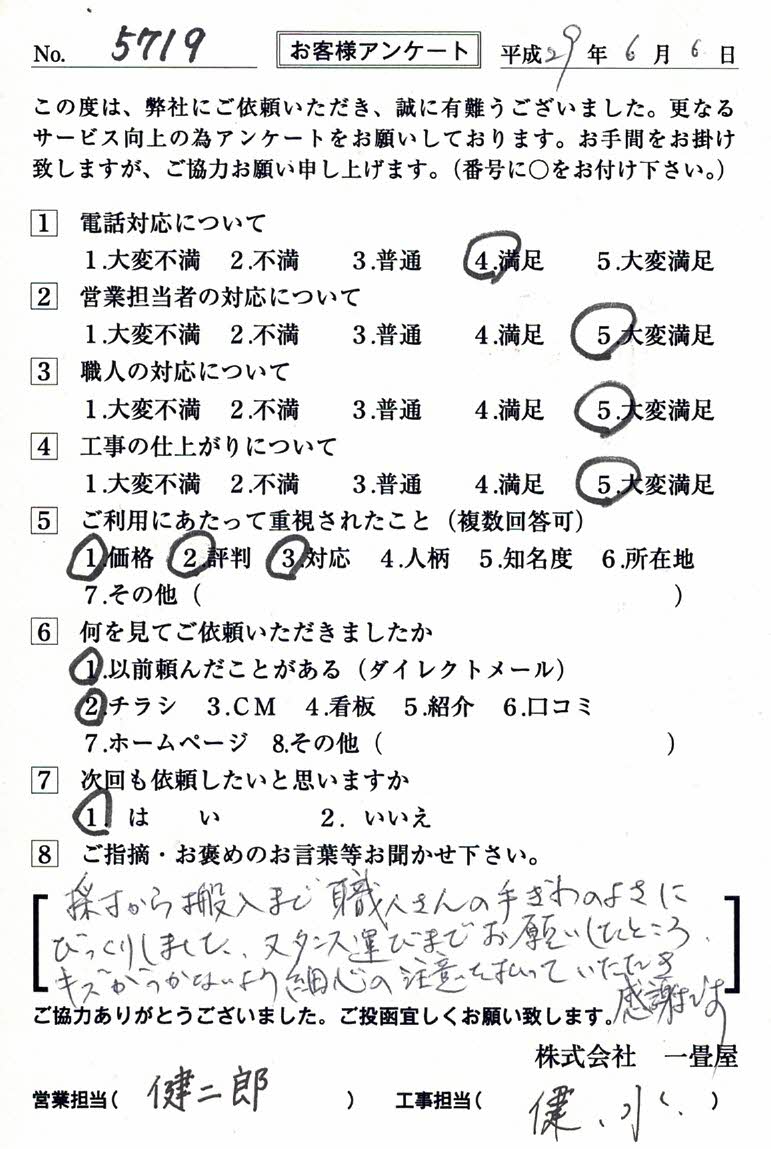 No. 5719 お客様アンケート 平成29年6月6日
この度は、弊社にご依頼いただき、誠に有難うございました。更なる
サービス向上の為アンケートをお願いしております。お手間をお掛け
致しますが、ご協力お願い申し上げます。（番号に○をお付け下さい。）
1 電話対応について
1.大変不満 2.不満 3.普通 4.満足 5.大変満足
2 営業担当者の対応について
1.大変不満 2.不満 3.普通 4.満足 5.大変満足
3 職人の対応について
1.大変不満 2.不満 3.普通 4.満足 5.大変満足
4 工事の仕上がりについて
1.大変不満 2.不満 3.普通 4.満足 5.大変満足
5 ご利用にあたって重視されたこと（複数回答可）
1.価格 2.評判 3.対応 4.人柄 5.知名度 6.所在地
7.その他（ ）
6 何を見てご依頼いただきましたか
1.以前頼んだことがある（ダイレクトメール）
2.チラシ 3.CM 4.看板 5.紹介 6.口コミ
7.ホームページ 8.その他（ ）
7 次回も依頼したいと思いますか
1. はい 2. いいえ
8 ご指摘・お褒めのお言葉等お聞かせ下さい。
採寸から搬入まで職人さんの手ぎわのよさに
びっくりしました、又タンス運びまでお願いしたところ、
キズがつかないよう細心の注意を払っていただき
感謝です
ご協力ありがとうございました。ご投函宜しくお願い致します。
株式会社 一畳屋
営業担当( 健二郎 ) 工事担当( 健、水、 )